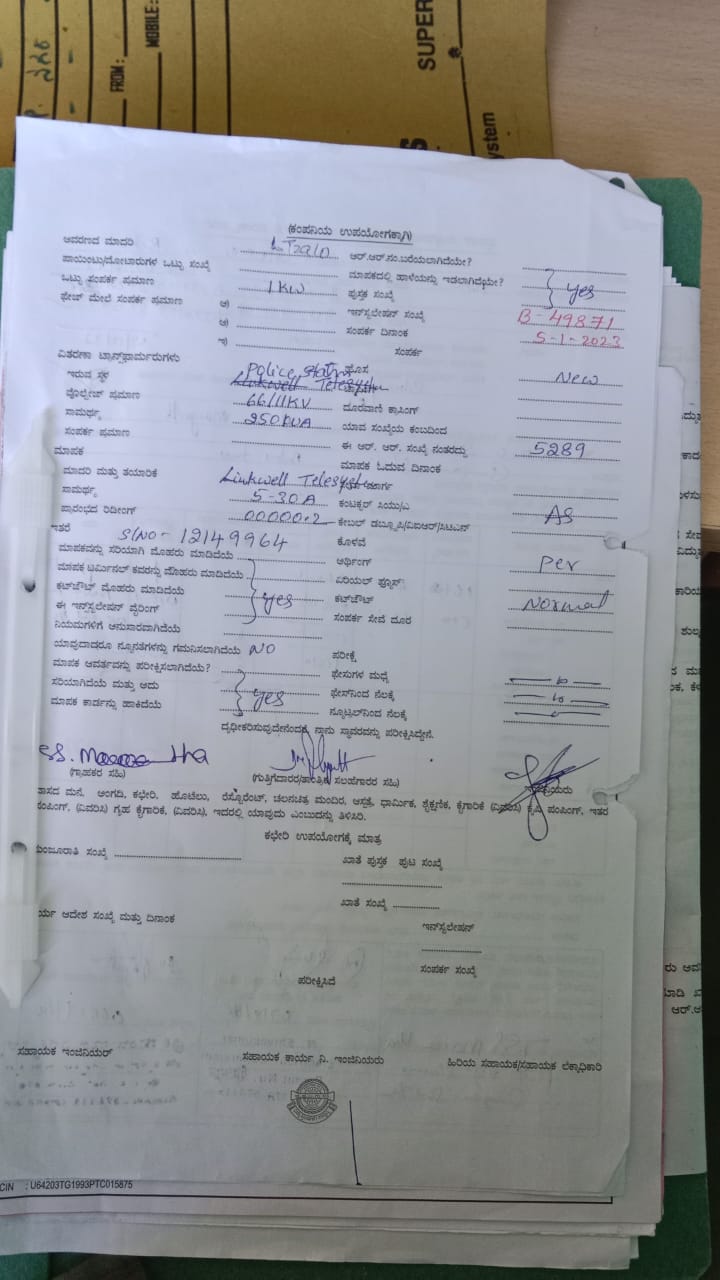 FROM:
MOBILE:
SUPER
ystem
(ಕಂಪನಿಯ ಉಪಯೋಗಕ್ಕಾಗಿ)
ಆವರಣದ ಮಾದರಿ
ಆರ್.ಆರ್.ನಂ.ಬರೆಯಲಾಗಿದೆಯೇ?
ಪಾಯಿಂಟು/ಮೋಟಾರುಗಳ ಒಟ್ಟು ಸಂಖ್ಯೆ
ಮಾಪಕದಲ್ಲಿ ಹಾಳೆಯನ್ನು ಇಡಲಾಗಿದೆಯೇ? yes
ಒಟ್ಟು ಸಂಪರ್ಕ ಪ್ರಮಾಣ 1KW ಪುಸ್ತಕ ಸಂಖ್ಯೆ
ಫೇಜ್ ಮೇಲೆ ಸಂಪರ್ಕ ಪ್ರಮಾಣ ಇನ್‌ಸ್ಟಲೇಷನ್ ಸಂಖ್ಯೆ B-49871
ಸಂಪರ್ಕ ದಿನಾಂಕ 5-1-2023
ಸಂಪರ್ಕ
ವಿತರಣಾ ಟ್ರಾನ್ಸ್‌ಫಾರ್ಮರುಗಳು
ಇರುವ ಸ್ಥಳ Police station New
ವೋಲ್ಟೇಜ್ ಪ್ರಮಾಣ 66/11KV ದೂರವಾಣಿ ಕ್ರಾಸಿಂಗ್
ಸಾಮರ್ಥ್ಯ 250KVA ಯಾವ ಸಂಖ್ಯೆಯ ಕಂಬದಿಂದ
ಸಂಪರ್ಕ ಪ್ರಮಾಣ ಈ ಆರ್. ಆರ್. ಸಂಖ್ಯೆ ನಂತರದ್ದು 5289
ಮಾಪಕ ಮಾಪಕ ಓದುವ ದಿನಾಂಕ
ಮಾದರಿ ಮತ್ತು ತಯಾರಿಕೆ Linkwell Telesystem
ಸಾಮರ್ಥ್ಯ 5-30A ಕಂಟಕ್ಟರ್ ಸಿಯು/ಎ AS
ಪ್ರಾರಂಭದ ರಿಡಿಂಗ್ 00000.2
S/NO- 12149964 ಕೊಳವೆ
ಮಾಪಕವನ್ನು ಸರಿಯಾಗಿ ಮೊಹರು ಮಾಡಿದೆಯೆ ಅರ್ಥಿಂಗ್ Per
ಮಾಪಕ ಟರ್ಮಿನಲ್ ಕವರನ್ನು ಮೊಹರು ಮಾಡಿದೆಯೆ ಏರಿಯಲ್ ಫ್ಯೂಸ್
ಕಟ್‌ಔಟ್ ಮೊಹರು ಮಾಡಿದೆಯೆ yes ಕಟ್‌ಔಟ್ Normal
ಈ ಇನ್‌ಸ್ಟಲೇಷನ್ ವೈರಿಂಗ್ ಸಂಪರ್ಕ ಸೇವೆ ದೂರ
ನಿಯಮಗಳಿಗೆ ಅನುಸಾರವಾಗಿದೆಯೆ
ಯಾವುದಾದರೂ ನ್ಯೂನತೆಗಳನ್ನು ಗಮನಿಸಲಾಗಿದೆಯೆ NO ಪರೀಕ್ಷೆ
ಮಾಪಕ ಆವರ್ತವನ್ನು ಪರೀಕ್ಷಿಸಲಾಗಿದೆಯೆ? ಫೇಸುಗಳ ಮಧ್ಯೆ
ಸರಿಯಾಗಿದೆಯೆ ಮತ್ತು ಅದು yes ಫೇಸ್‌ನಿಂದ ನೆಲಕ್ಕೆ
ಮಾಪಕ ಕಾರ್ಡನ್ನು ಹಾಕಿದೆಯೆ ನ್ಯೂಟ್ರಲ್‌ನಿಂದ ನೆಲಕ್ಕೆ
ದೃಢೀಕರಿಸುವುದೇನೆಂದರೆ, ನಾನು ಸ್ಥಾವರವನ್ನು ಪರೀಕ್ಷಿಸಿದ್ದೇನೆ.
(ಗ್ರಾಹಕರ ಸಹಿ) (ಗುತ್ತಿಗೆದಾರರ/ತಾಂತ್ರಿಕ ಸಲಹೆಗಾರರ ಸಹಿ)
ಾಸದ ಮನೆ, ಅಂಗಡಿ, ಕಛೇರಿ, ಹೊಟೆಲು, ರೆಸ್ಟೋರೆಂಟ್, ಚಲನಚಿತ್ರ ಮಂದಿರ, ಆಸ್ಪತ್ರೆ, ಧಾರ್ಮಿಕ, ಶೈಕ್ಷಣಿಕ, ಕೈಗಾರಿಕೆ (ವಿವರಿಸಿ) ಕೃಷಿ ಪಂಪಿಂಗ್, ಇತರ
ಪಂಪಿಂಗ್, (ವಿವರಿಸಿ) ಗೃಹ ಕೈಗಾರಿಕೆ, (ವಿವರಿಸಿ), ಇದರಲ್ಲಿ ಯಾವುದು ಎಂಬುದನ್ನು ತಿಳಿಸಿರಿ.
ಕಛೇರಿ ಉಪಯೋಗಕ್ಕೆ ಮಾತ್ರ
ಮಂಜೂರಾತಿ ಸಂಖ್ಯೆ ಖಾತೆ ಪುಸ್ತಕ ಪುಟ ಸಂಖ್ಯೆ
ಖಾತೆ ಸಂಖ್ಯೆ
ರ್ಯ ಆದೇಶ ಸಂಖ್ಯೆ ಮತ್ತು ದಿನಾಂಕ ಇನ್‌ಸ್ಟಲೇಷನ್
ಸಂಪರ್ಕ ಸಂಖ್ಯೆ
ಪರೀಕ್ಷಿಸಿದೆ
ಸಹಾಯಕ ಇಂಜಿನಿಯರ್ ಸಹಾಯಕ ಕಾರ್ಯ ನಿ. ಇಂಜಿನಿಯರು ಹಿರಿಯ ಸಹಾಯಕ/ಸಹಾಯಕ ಲೆಕ್ಕಾಧಿಕಾರಿ
CIN : U64203TG1993PTC015875